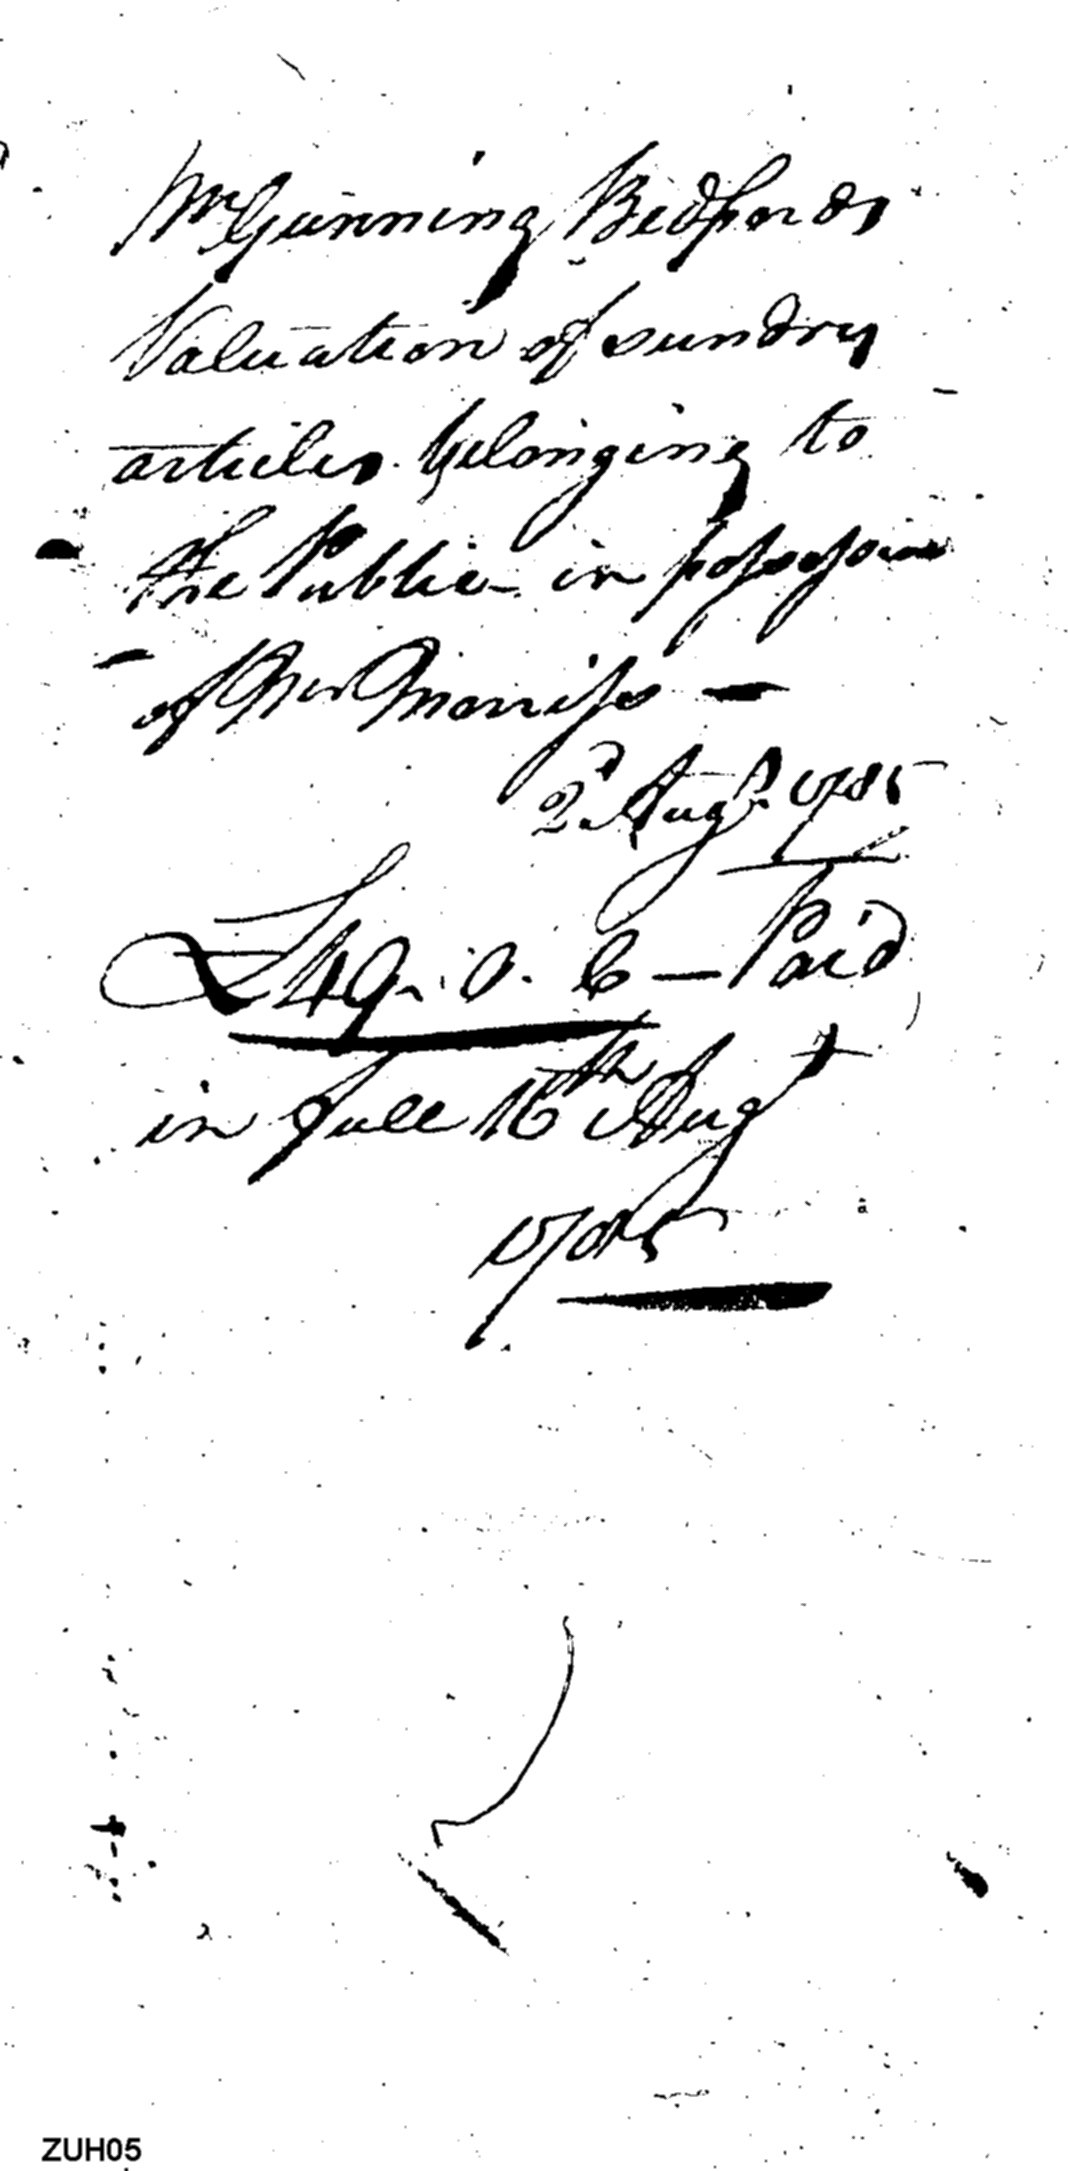 Mr Gunning Bedfords
Valuation of sundry
articles belonging to
the Public in possession
of Mr Morriss —
2d Augt. 1785
£49. 0. 6 — Paid
in full 16th Augt
1785
ZUH05